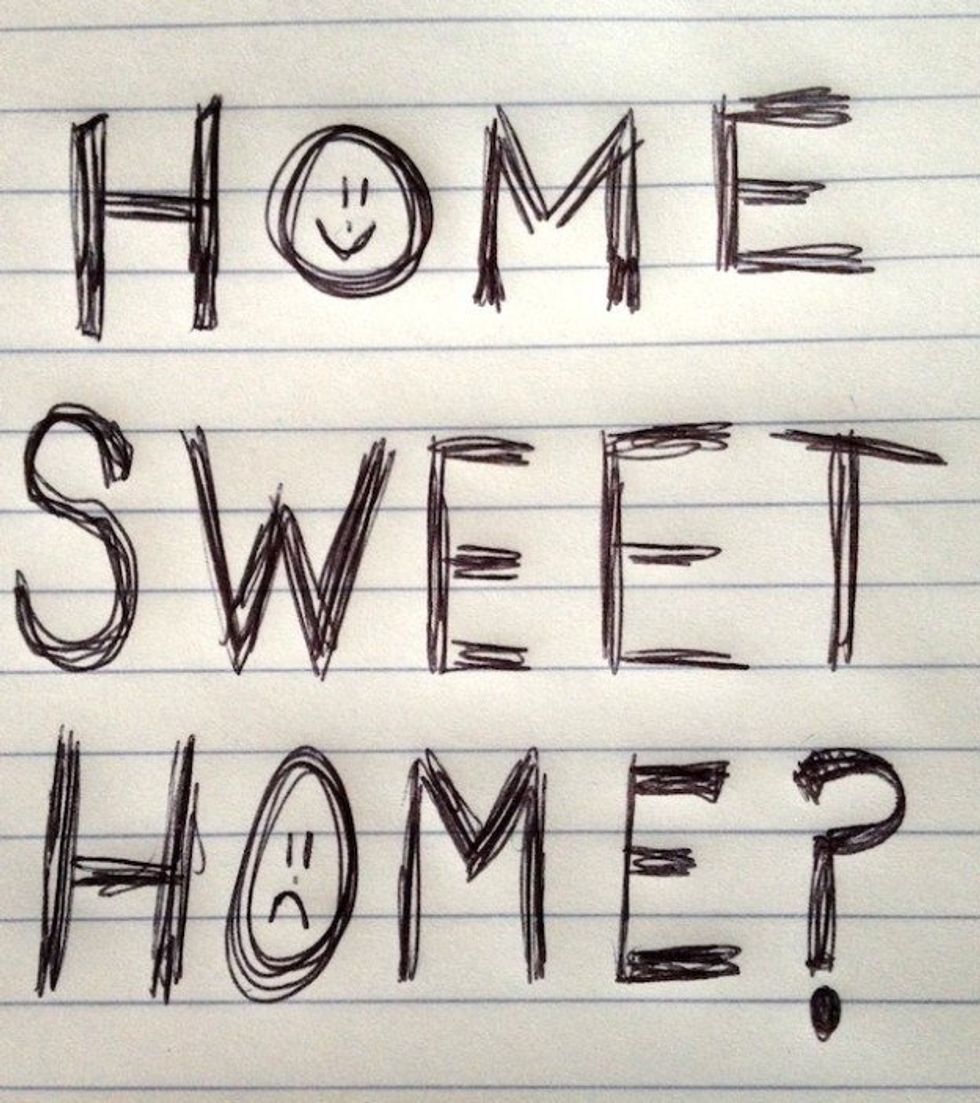 HOME
SWEET
HOME?